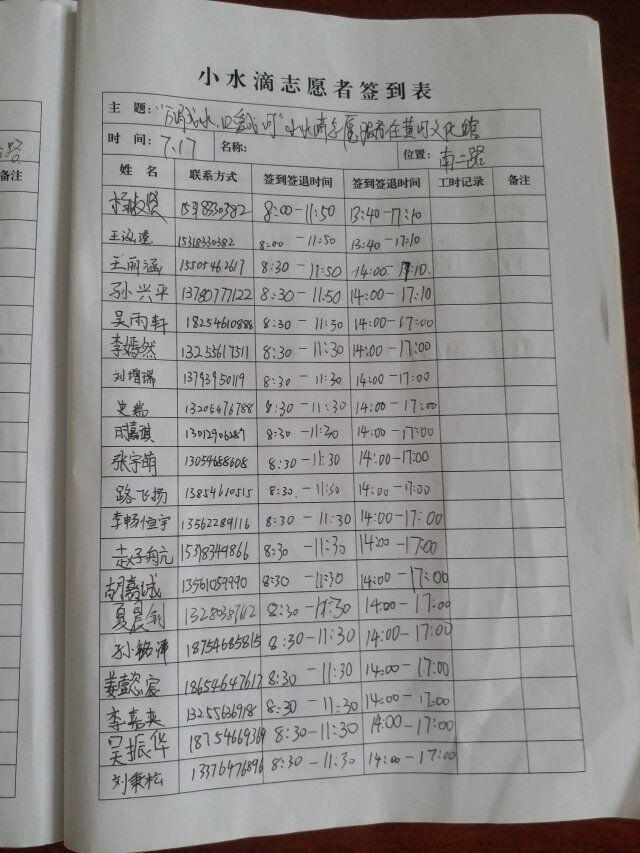 小水滴志愿者签到表
主 题: 小水滴志愿服务在黄河文化馆
时 间: 7.17 名称: 位置: 南二路
姓 名 联系方式 签到签退时间 签到签退时间 工时记录 备注
备注
8:00-11:50 13:40-17:10
15318330382 8:00-11:50 13:40-17:10
王丽涵 15505462617 8:30-11:50 14:00 17:10
孙兴平 13780777122 8:30-11:50 14:00-17:10
吴雨轩 18254610886 8:30-11:30 14:00-17:00
李嫣然 13255617511 8:30-11:30 14:00-17:00
刘增瑞 13793950119 8:30-11:30 14:00-17:00
史瑞 13205476788 8:30-11:30 14:00-17:00
8:30-11:30 14:00-17:00
张宇萌 13054688608 8:30-11:30 14:00-17:00
路飞扬 13854610515 8:30-11:30 14:00-17:00
李畅恒宇 13562289116 8:30-11:30 14:00-17:00
15318349866 8:30-11:30 14:00-17:00
胡嘉城 13561059990 8:30-11:30 14:00-17:00
8:30-11:30 14:00-17:00
孙铭泽 18754685815 8:30-11:30 14:00-17:00
姜懿宸 18654647617 8:30-11:30 14:00-17:00
李嘉奕 13255636918 8:30-11:30 14:00-17:00
吴振华 18754669369 8:30-11:30 14:00-17:00
刘秉松 13376476896 8:30-11:30 14:00-17:00